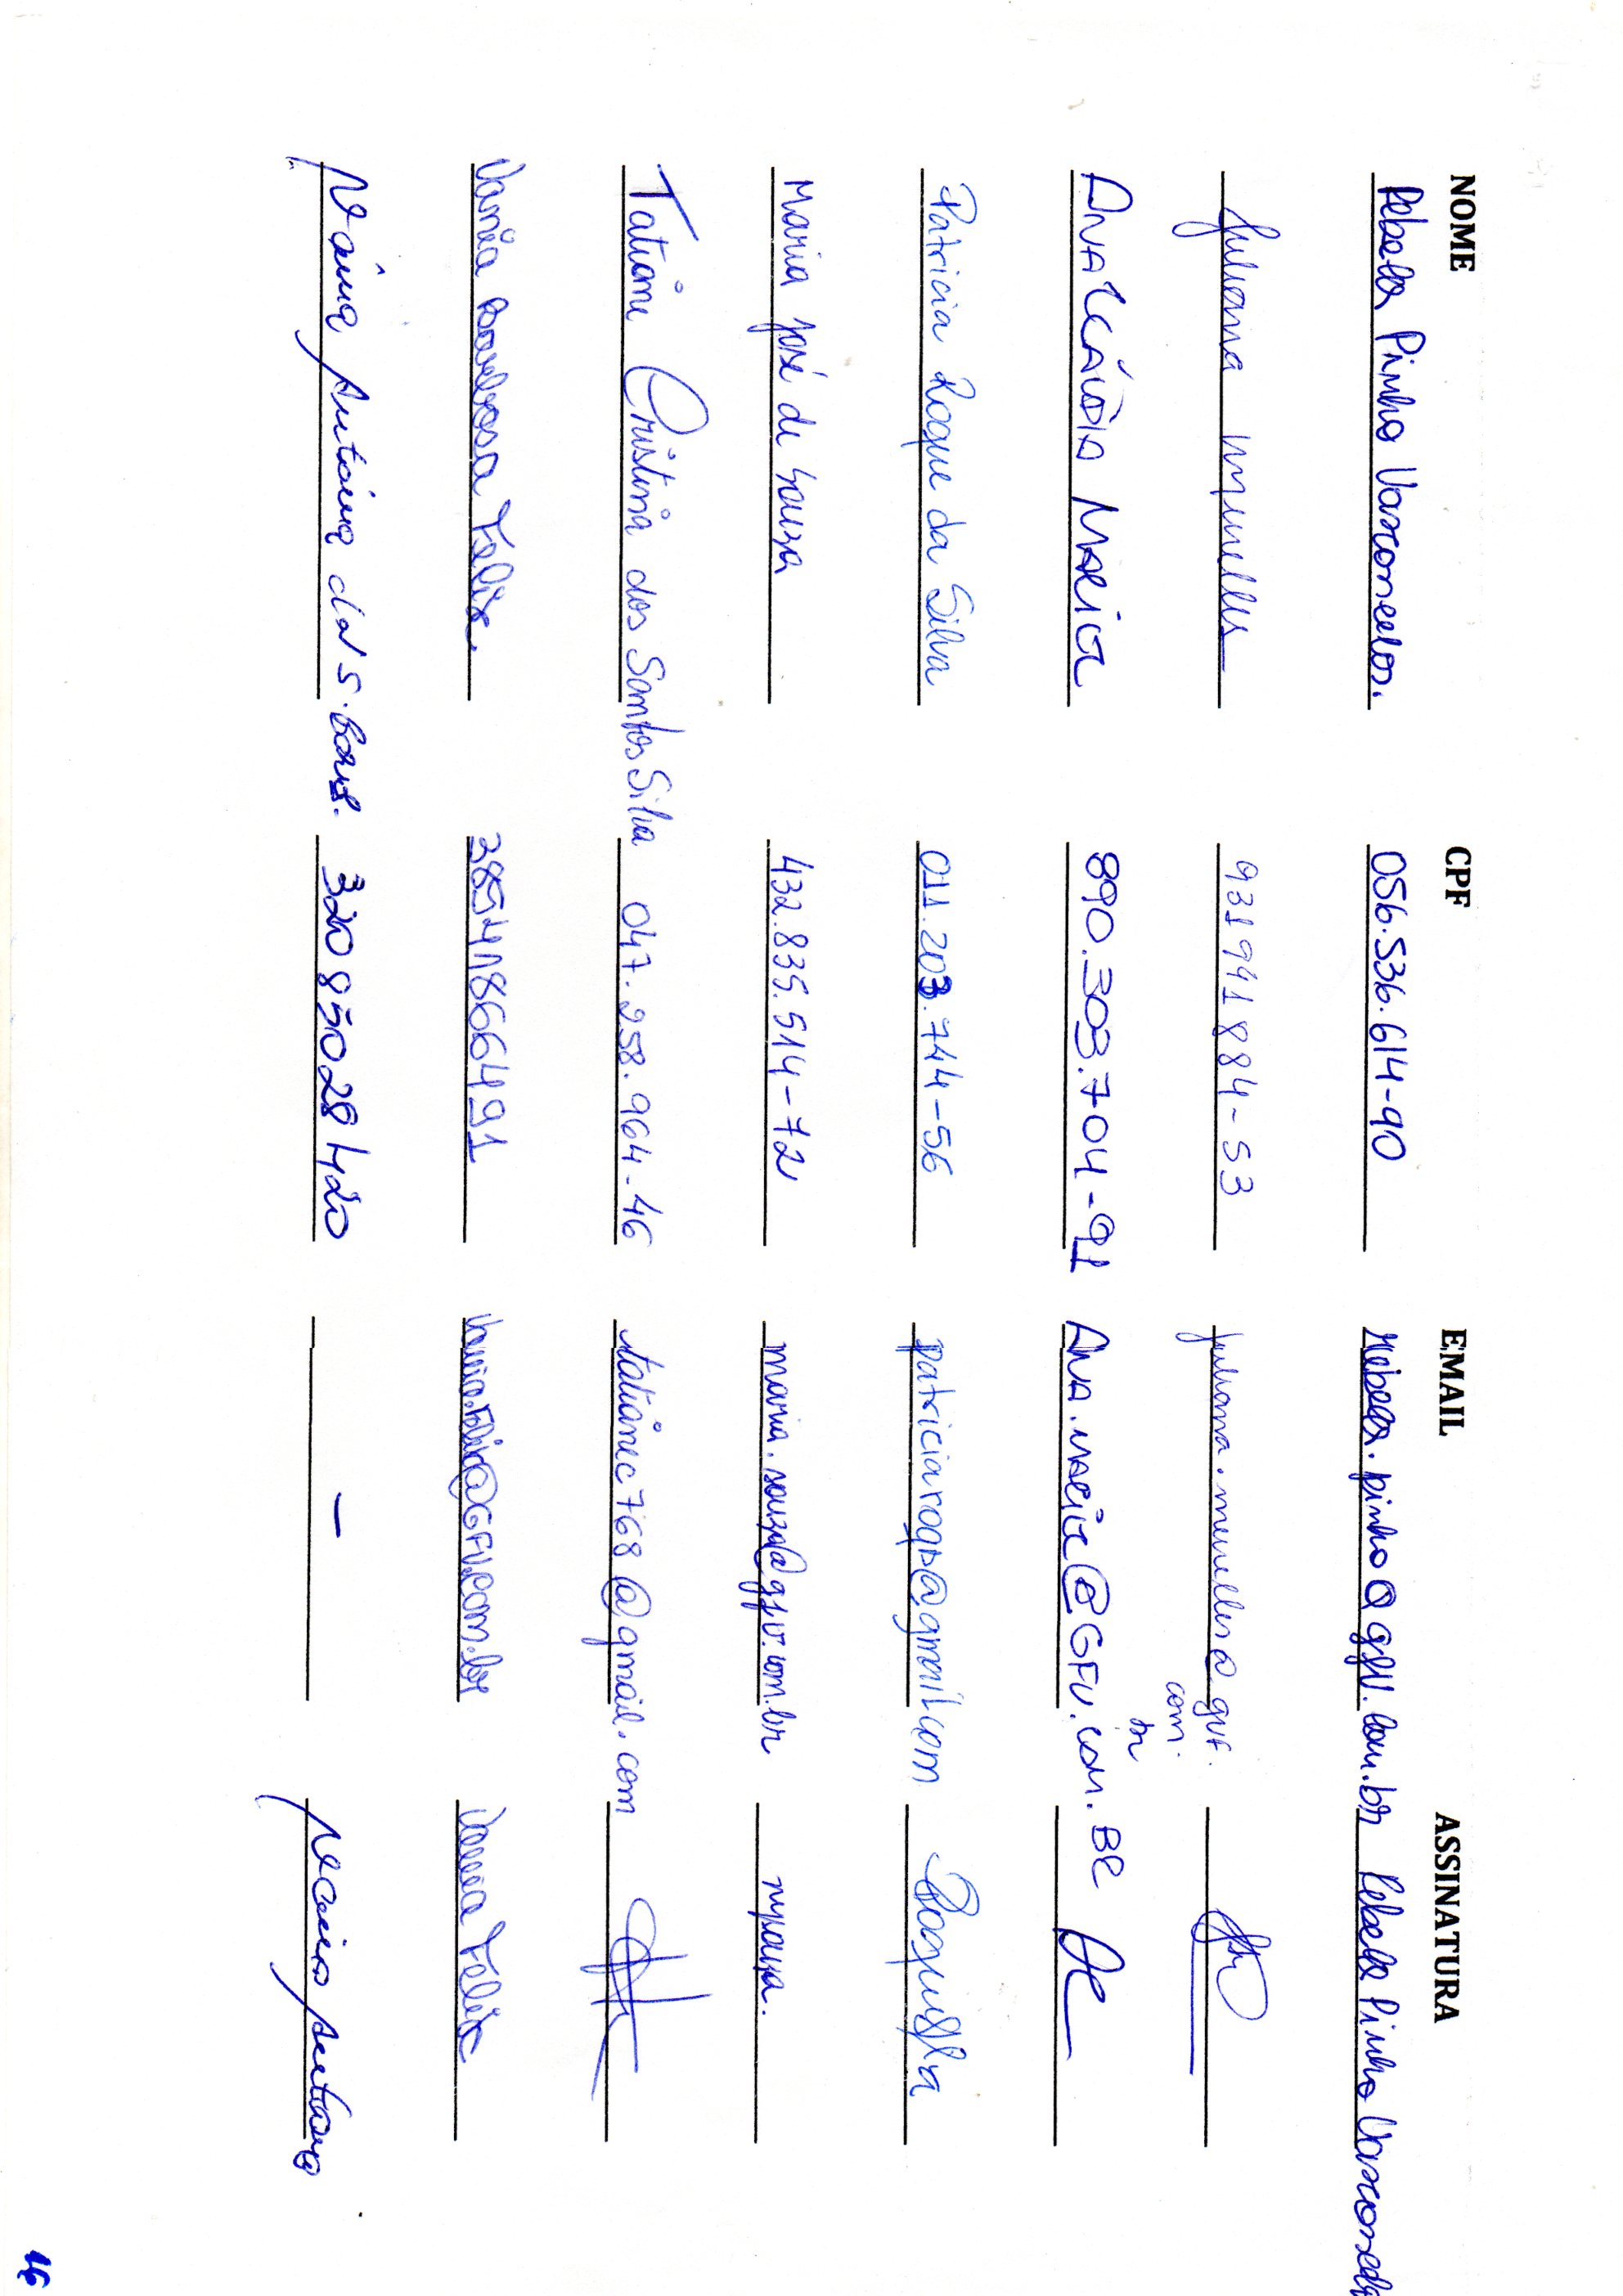 NOME CPF EMAIL ASSINATURA
Rebeka Pinho Vasconcelos. 056.536.614-90 rebeka.pinho@gfv.com.br Rebeka Pinho Vasconcelos
Juliana Meirelles 931941884-53 juliana.meirelles@gvf.
com.
br
ANA CLÁUDIA MARIA 890.303.704-91 ANA.MARIA@GFV.COM.BR
Patricia Roque da Silva 011.203.744-56 patriciaroqs@gmail.com
Maria José de Souza 432.835.514-72 maria.souza@gfv.com.br
Tatiane Cristina dos Santos Silva 047.958.964-46 tatianec768@gmail.com
Vania Barbosa Felix. 38541866491 vania.felix@GFV.com.br Vania Felix
Vânia Antonia da S. 32085028420 —
16